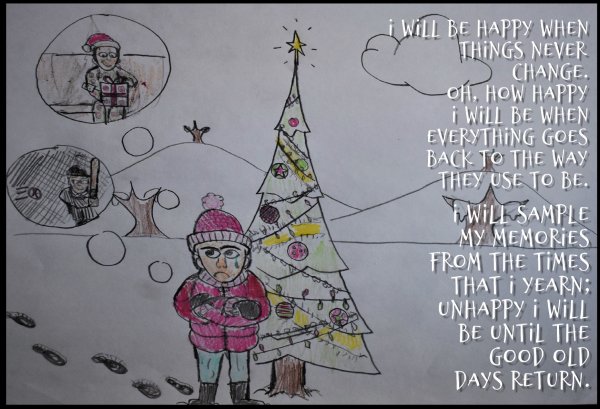 i WiLL BE HAPPY WHEN
THiNGS NEVER
CHANGE.
OH, HOW HAPPY
i WiLL BE WHEN
EVERYTHiNG GOES
BACK TO THE WAY
THEY USE TO BE.
i WiLL SAMPLE
MY MEMORiES
FROM THE TiMES
THAT i YEARN;
UNHAPPY i WiLL
BE UNTiL THE
GOOD OLD
DAYS RETURN.